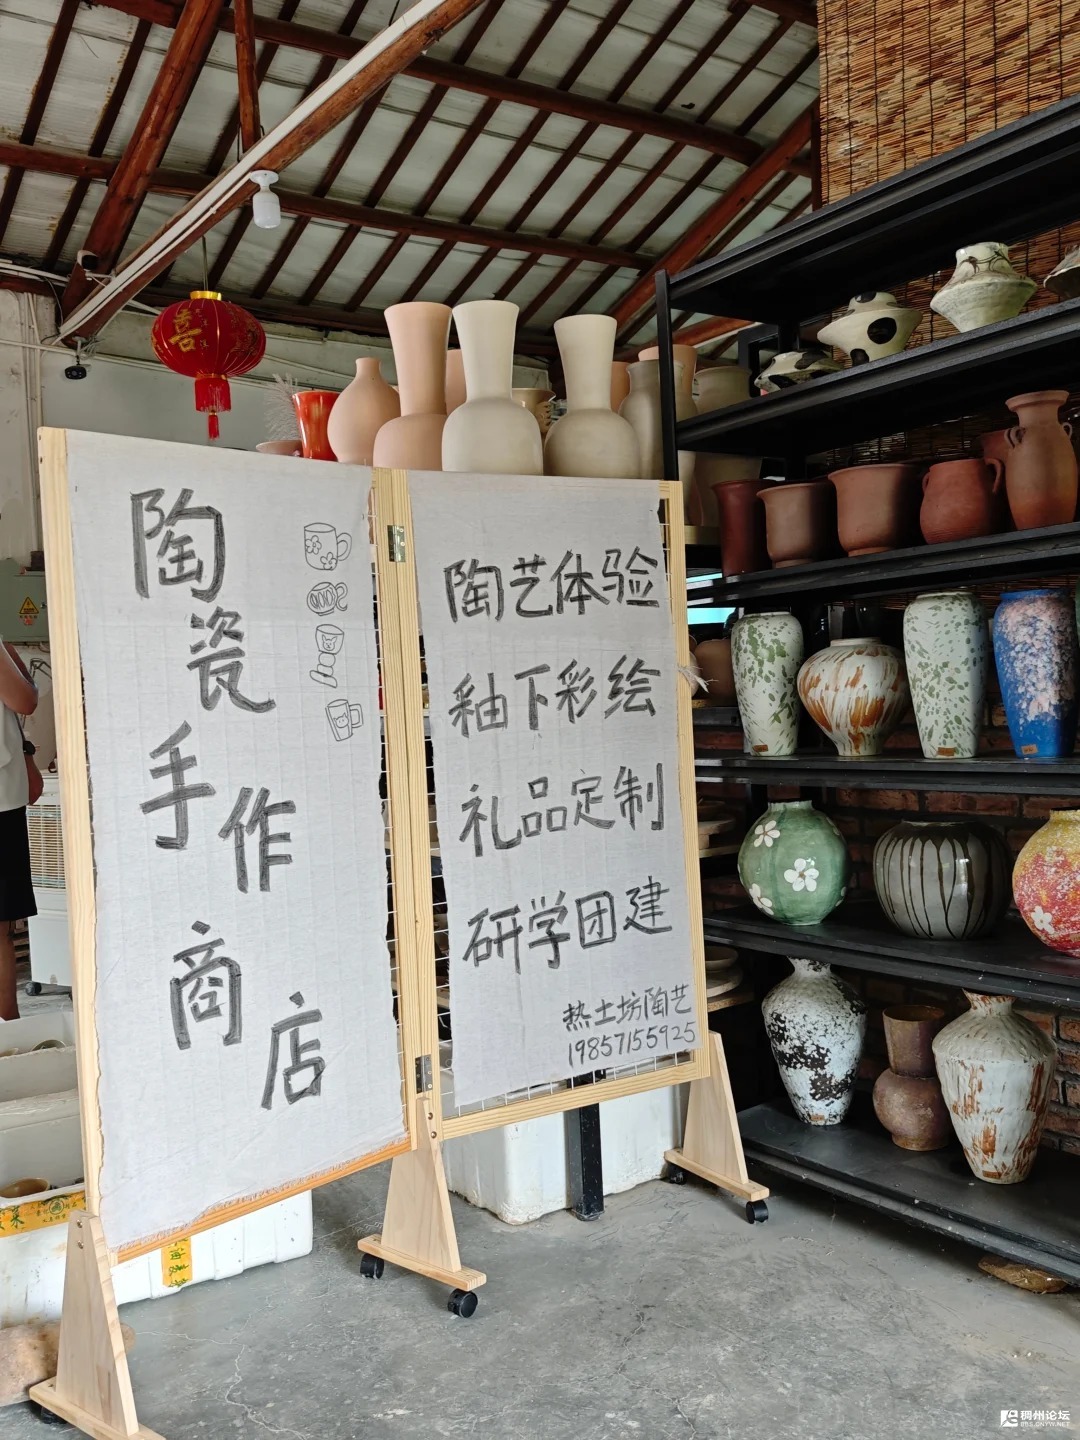 喜
陶瓷手作商店
陶艺体验
釉下彩绘
礼品定制
研学团建
热土坊陶艺
19857155925
稠州论坛